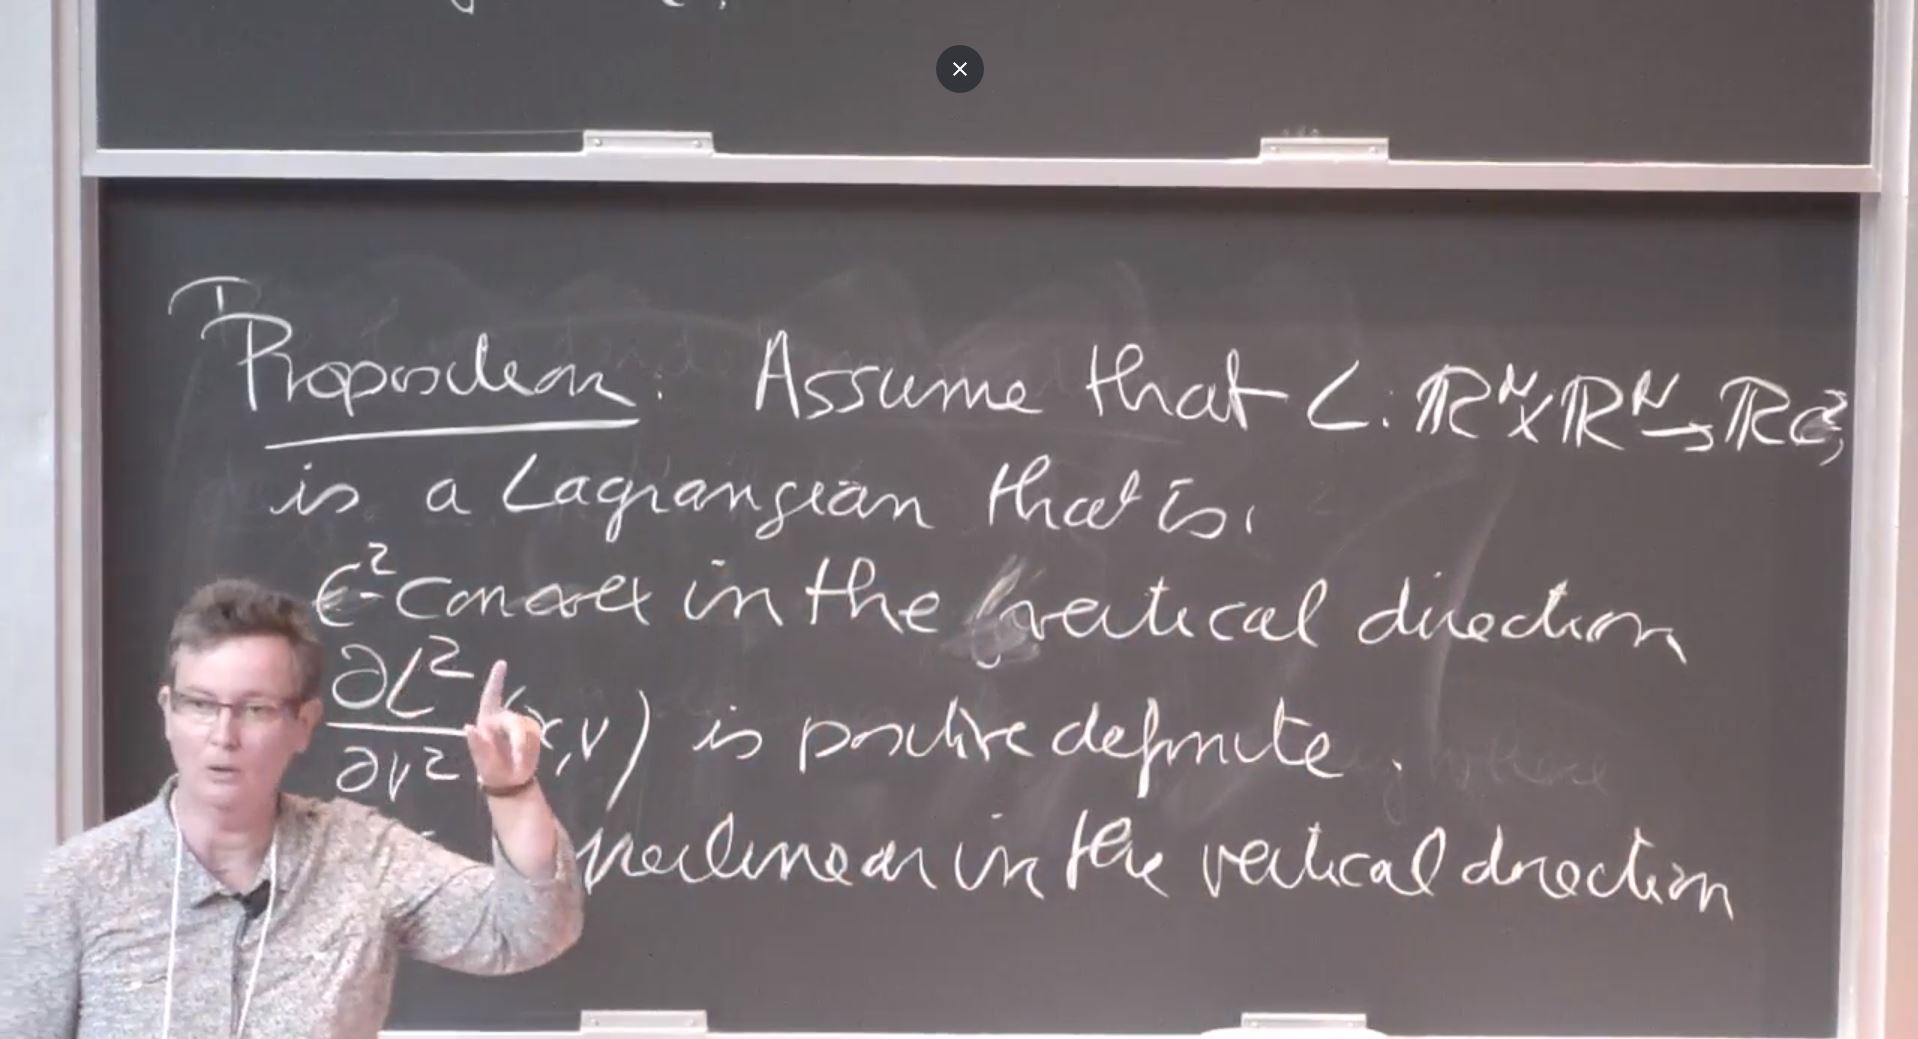 Proposition: Assume that L: ℝᴺ×ℝᴺ→ℝ C²,
is a Lagrangian that is,
C²-convex in the vertical direction
∂L²/∂v² (x,v) is positive definite.
in the vertical direction